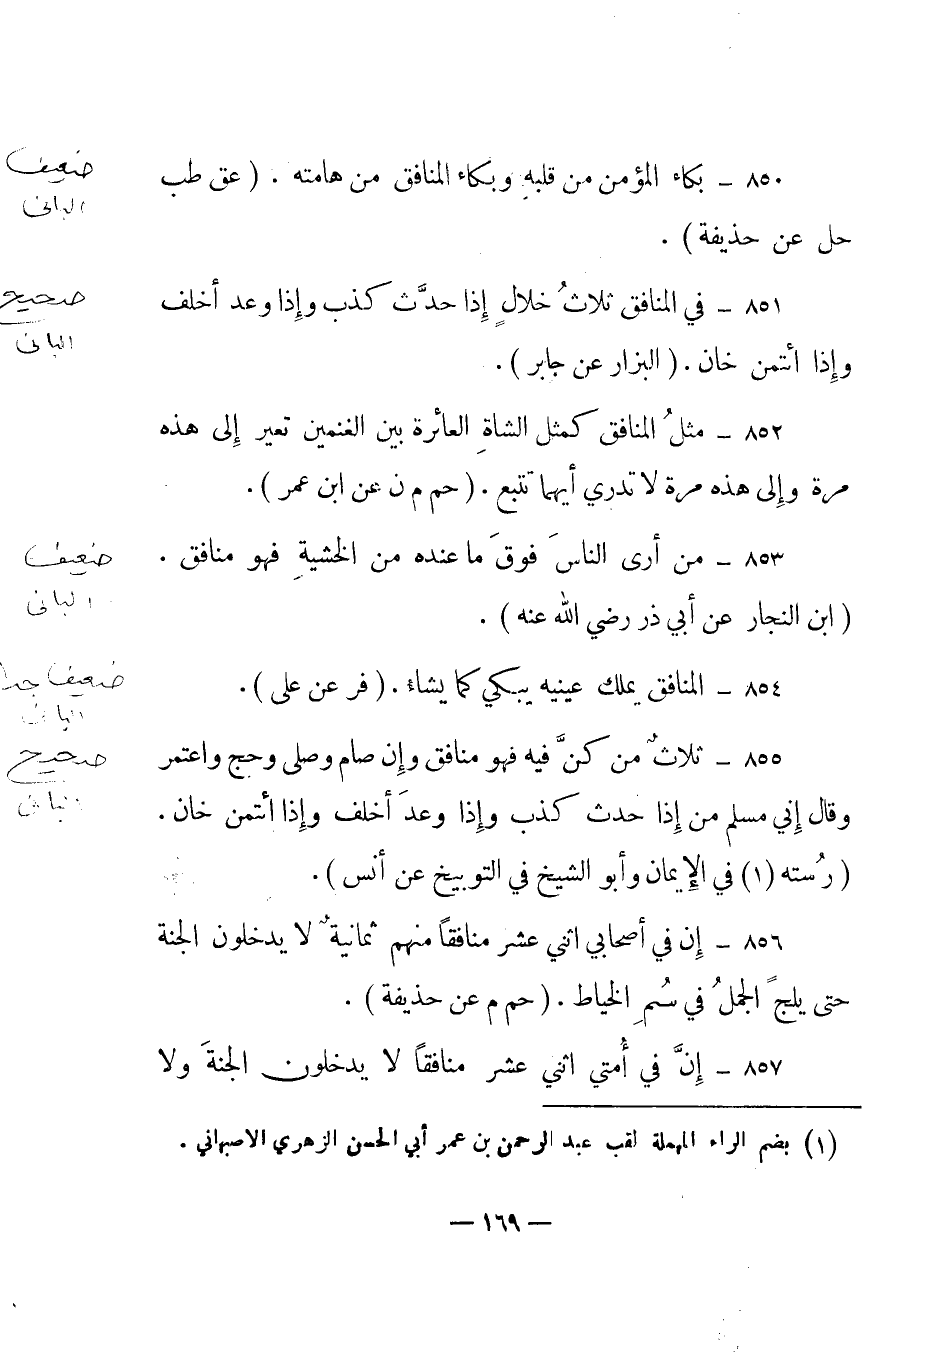 ٨٥٠ ـ بكاء المؤمن من قلبهِ وبكاء المنافق من هامته . ( عق طب
ضعيف
البانى
حل عن حذيفة ) .
٨٥١ ـ في المنافق ثلاثُ خلالٍ إِذا حدَّث كذب وإِذا وعد أخلف
صحيح
البانى
وإِذا أئتمن خان . ( البزار عن جابر ) .
٨٥٢ ـ مثلُ المنافق كمثل الشاةِ العائرة بين الغنمين تعير إِلى هذه
مرة وإِلى هذه مرة لا تدري أيهما تتبع . ( حم م ن عن ابن عمر ) .
٨٥٣ ـ من أرى الناسَ فوقَ ما عنده من الخشيةِ فهو منافق .
ضعيف
البانى
( ابن النجار عن أبي ذر رضي الله عنه ) .
٨٥٤ ـ المنافق يملك عينيه يبكي كما يشاء . ( فر عن علي ) .
ضعيف جدا
البانى
٨٥٥ ـ ثلاثٌ من كنَّ فيه فهو منافق وإِن صام وصلى وحج واعتمر
صحيح
البانى
وقال إِني مسلم من إِذا حدث كذب وإِذا وعدَ أخلف وإِذا أئتمن خان .
( رُسته (١) في الإِيمان وأبو الشيخ في التوبيخ عن أنس ) .
٨٥٦ ـ إِن في أصحابي اثني عشر منافقاً منهم ثمانيةٌ لا يدخلون الجنة
حتى يلجَ الجملُ في سُمِ الخياط . ( حم م عن حذيفة ) .
٨٥٧ ـ إِنَّ في أُمتي اثني عشر منافقاً لا يدخلون الجنةَ ولا
(١) بضم الراء المهملة لقب عبد الرحمن بن عمر أبي الحسن الزهري الاصبهاني .
— ١٦٩ —